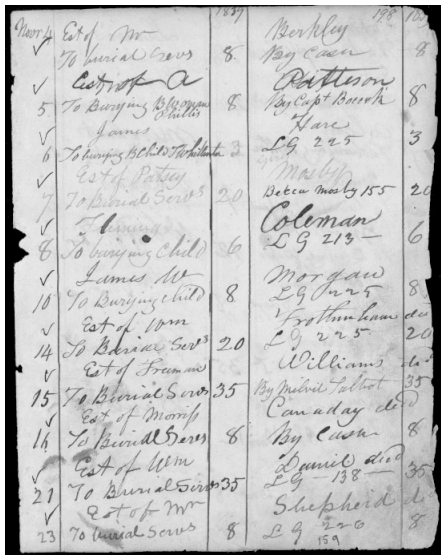 1839 198
Novr 4 Est of Mr Berkley
To burial Servs 8 By Cash 8
Est of A Patteson
5 To Burying B Woman Phillis 8 By Capt Bocock 8
James Hare
6 To burying B Child 3 L G 225 3
Est of Patsey Mosby
7 To Burial Servs 20 Betca Mosby 155 20
Fleming Coleman
8 To burying Child 6 L G 213 — 6
James W Morgan
10 To Burying child 8 L G 225 8
Est of Wm
14 To Burial Servs 20 L G 225 20
Est of Truman Williams
15 To Burial Serves 35 By Milvil Talbot 35
Est of Morriss Canaday died
16 To Burial Serves 8 By Cash 8
Est of Wm Daniel died
21 To Burial Serves 35 L G — 138 — 35
Est of Mr Shepherd
23 To burial Serves 8 L G 226 8
159